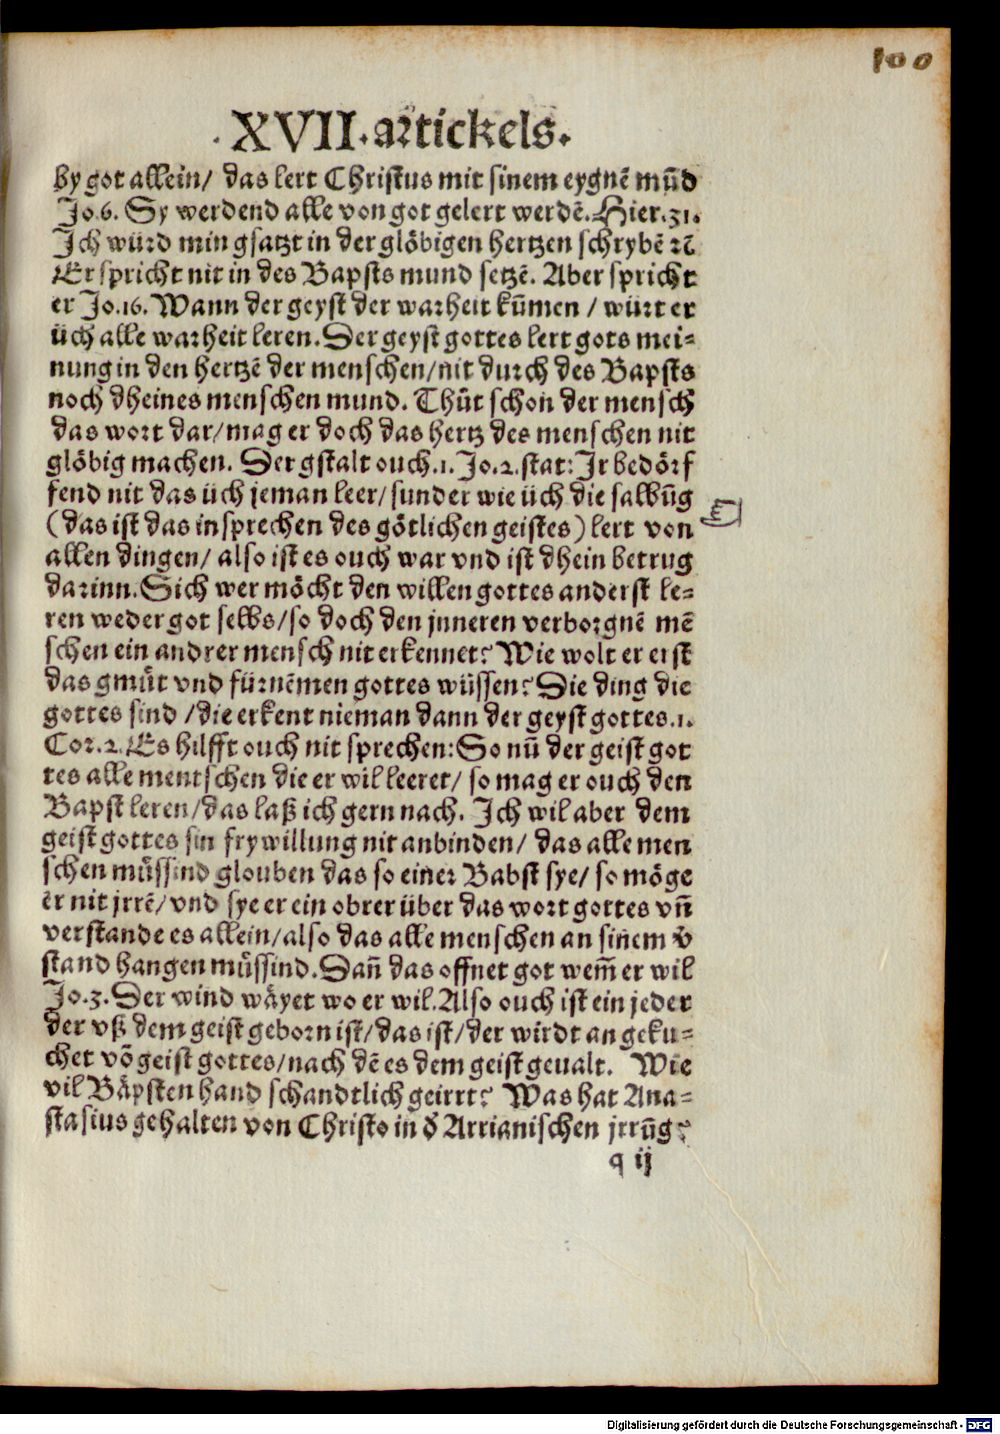 100
·XVII·artickels·
by got allein/ das lert Christus mit sinem eygnē mūd
Jo.6. Sy werdend alle von got gelert werdē. Hier.31.
Ich würd min gsatzt in der glöbigen hertzen schrybē ꝛc̄
Er spricht nit in des Bapsts mund setzē. Aber spricht
er Jo.16. Wann der geyst der warheit kūmen / würt er
üch alle warheit leren. Der geyst gottes lert gots mei⸗
nung in den hertzē der menschen/ nit durch des Bapsts
noch dheines menschen mund. Thůt schon der mensch
das wort dar/ mag er doch das hertz des menschen nit
glöbig machen. Der gstalt ouch .1. Jo.2. stat: Ir bedörf
fend nit das üch jeman leer/ sunder wie üch die salbūg
(das ist das insprechen des götlichen geistes) lert von
allen dingen/ also ist es ouch war vnd ist dhein betrug
darinn. Sich wer möcht den willen gottes anderst le⸗
ren weder got selbs/ so doch den jnneren verborgnē mē
schen ein andrer mensch nit erkennet? Wie wolt er erst
das gmüt vnd fürnēmen gottes wüssen? Die ding die
gottes sind / die erkent nieman dann der geyst gottes .1.
Cor.2. Es hilfft ouch nit sprechen: So nū der geist got
tes alle mentschen die er wil leeret/ so mag er ouch den
Bapst leren/ das laß ich gern nach. Ich wil aber dem
geist gottes sin frywillung nit anbinden/ das alle men
schen müssind glouben das so einer Babst sye/ so möge
er nit jrrē/ vnd sye er ein obrer über das wort gottes vn̄
verstande es allein/ also das alle menschen an sinem v̄
stand hangen müssind. Dan̄ das offnet got wem̄ er wil
Jo.3. Der wind wäyet wo er wil. Also ouch ist ein jeder
der vß dem geist geborn ist/ das ist/ der wirdt angeku⸗
chet vō geist gottes/ nach dē es dem geist geualt. Wie
vil Bäpsten hand schandtlich geirrt? Was hat Ana⸗
stasius gehalten von Christo in d̄ Arrianischen jrrūg?
q ij
Digitalisierung gefördert durch die Deutsche Forschungsgemeinschaft - DFG